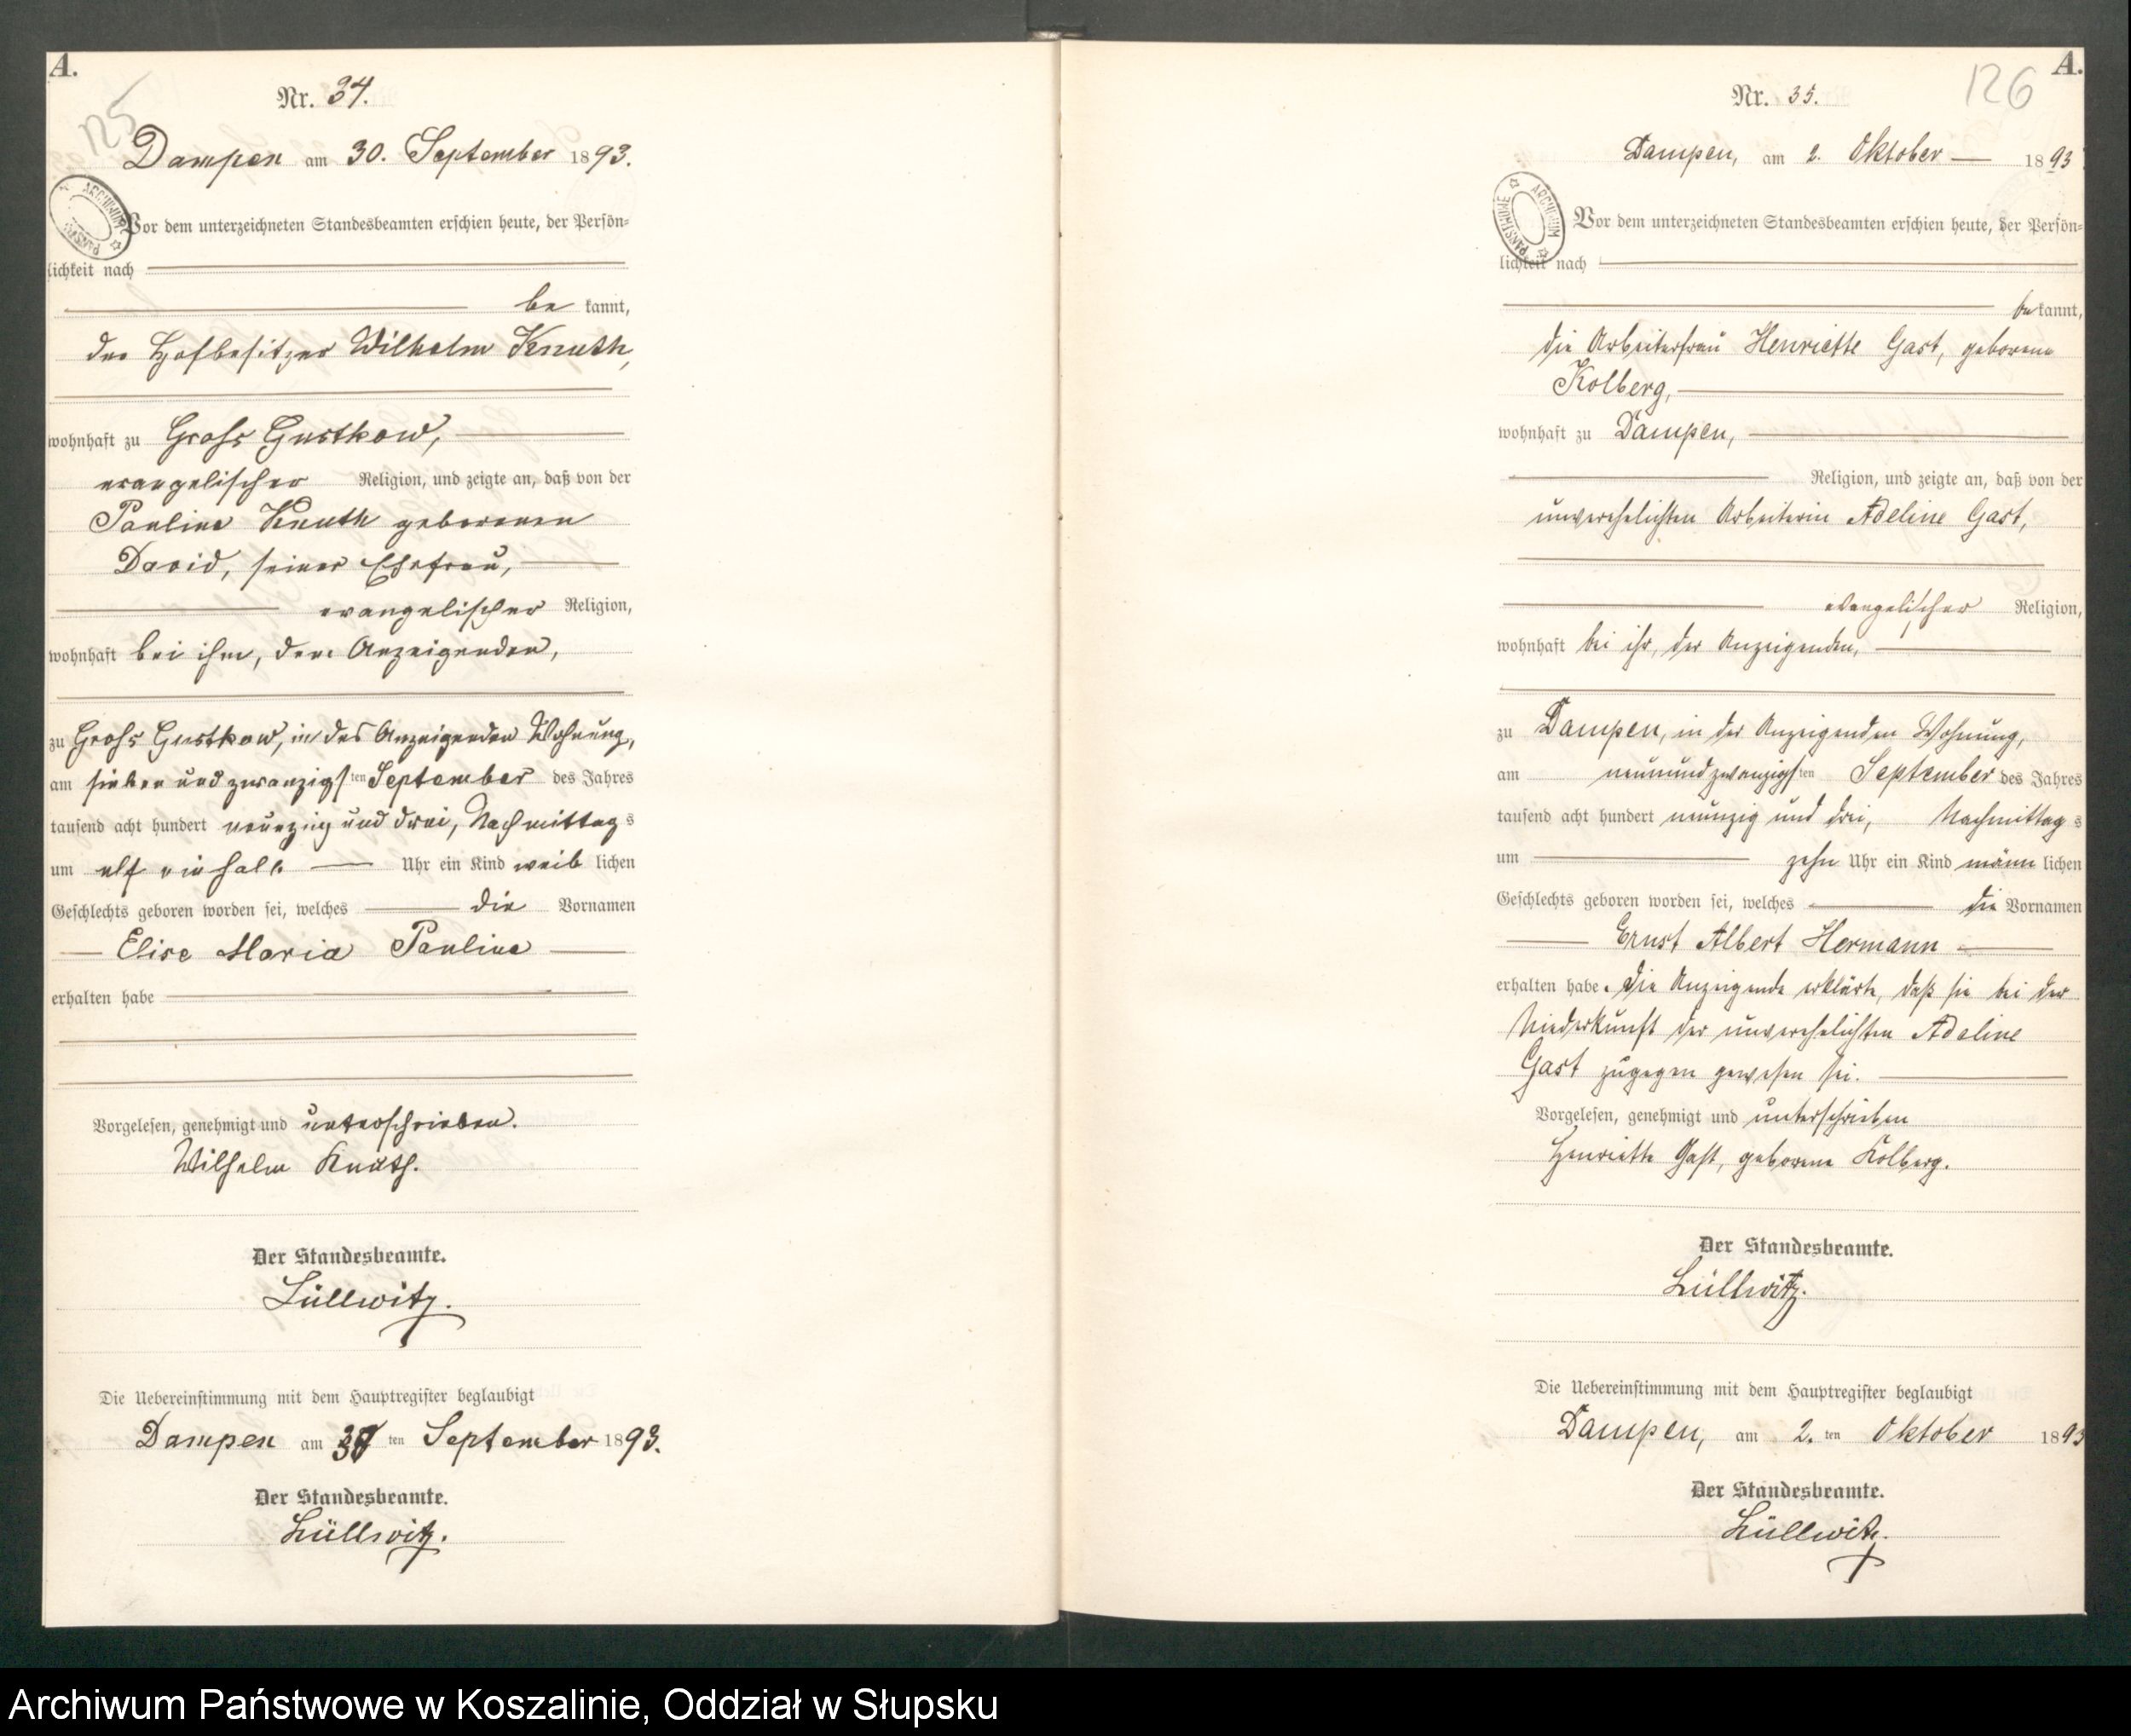 A.
125
Nr. 34.
Dampen am 30. September 1893.
ARCHIWUM PAŃSTWOWE
Vor dem unterzeichneten Standesbeamten erschien heute, der Persön-
lichkeit nach
be kannt,
der Hofbesitzer Wilhelm Knuth,
wohnhaft zu Gross Gustkow,
evangelischer Religion, und zeigte an, daß von der
Pauline Knuth geborenen
David, seiner Ehefrau,
evangelischer Religion,
wohnhaft bei ihm, dem Anzeigenden,
zu Gross Gustkow, in des Anzeigenden Wohnung,
am sieben und zwanzigsten September des Jahres
tausend acht hundert neunzig und drei, Nachmittags
um elf ein halb Uhr ein Kind weib lichen
Geschlechts geboren worden sei, welches die Vornamen
Elise Maria Pauline
erhalten habe
Vorgelesen, genehmigt und unterschrieben.
Wilhelm Knuth.
Der Standesbeamte.
Lüllwitz.
Die Uebereinstimmung mit dem Hauptregister beglaubigt
Dampen am 30 ten September 1893.
Der Standesbeamte.
Lüllwitz.
A.
126
Nr. 35.
Dampen, am 2. Oktober 1893
ARCHIWUM PAŃSTWOWE
Vor dem unterzeichneten Standesbeamten erschien heute, der Persön-
lichkeit nach
be kannt,
die Arbeiterfrau Henriette Gast, geborene
Kolberg,
wohnhaft zu Dampen,
Religion, und zeigte an, daß von der
unverehelichten Arbeiterin Adeline Gast,
evangelischer Religion,
wohnhaft bei ihr, der Anzeigenden,
zu Dampen, in der Anzeigenden Wohnung,
am neunundzwanzigsten September des Jahres
tausend acht hundert neunzig und drei, Nachmittags
um zehn Uhr ein Kind männ lichen
Geschlechts geboren worden sei, welches die Vornamen
Ernst Albert Hermann
erhalten habe. Die Anzeigende erklärte, daß sie bei der
Niederkunft der unverehelichten Adeline
Gast zugegen gewesen sei.
Vorgelesen, genehmigt und unterschrieben
Henriette Gast, geborene Kolberg.
Der Standesbeamte.
Lüllwitz.
Die Uebereinstimmung mit dem Hauptregister beglaubigt
Dampen, am 2. ten Oktober 1893
Der Standesbeamte.
Lüllwitz.
Archiwum Państwowe w Koszalinie, Oddział w Słupsku